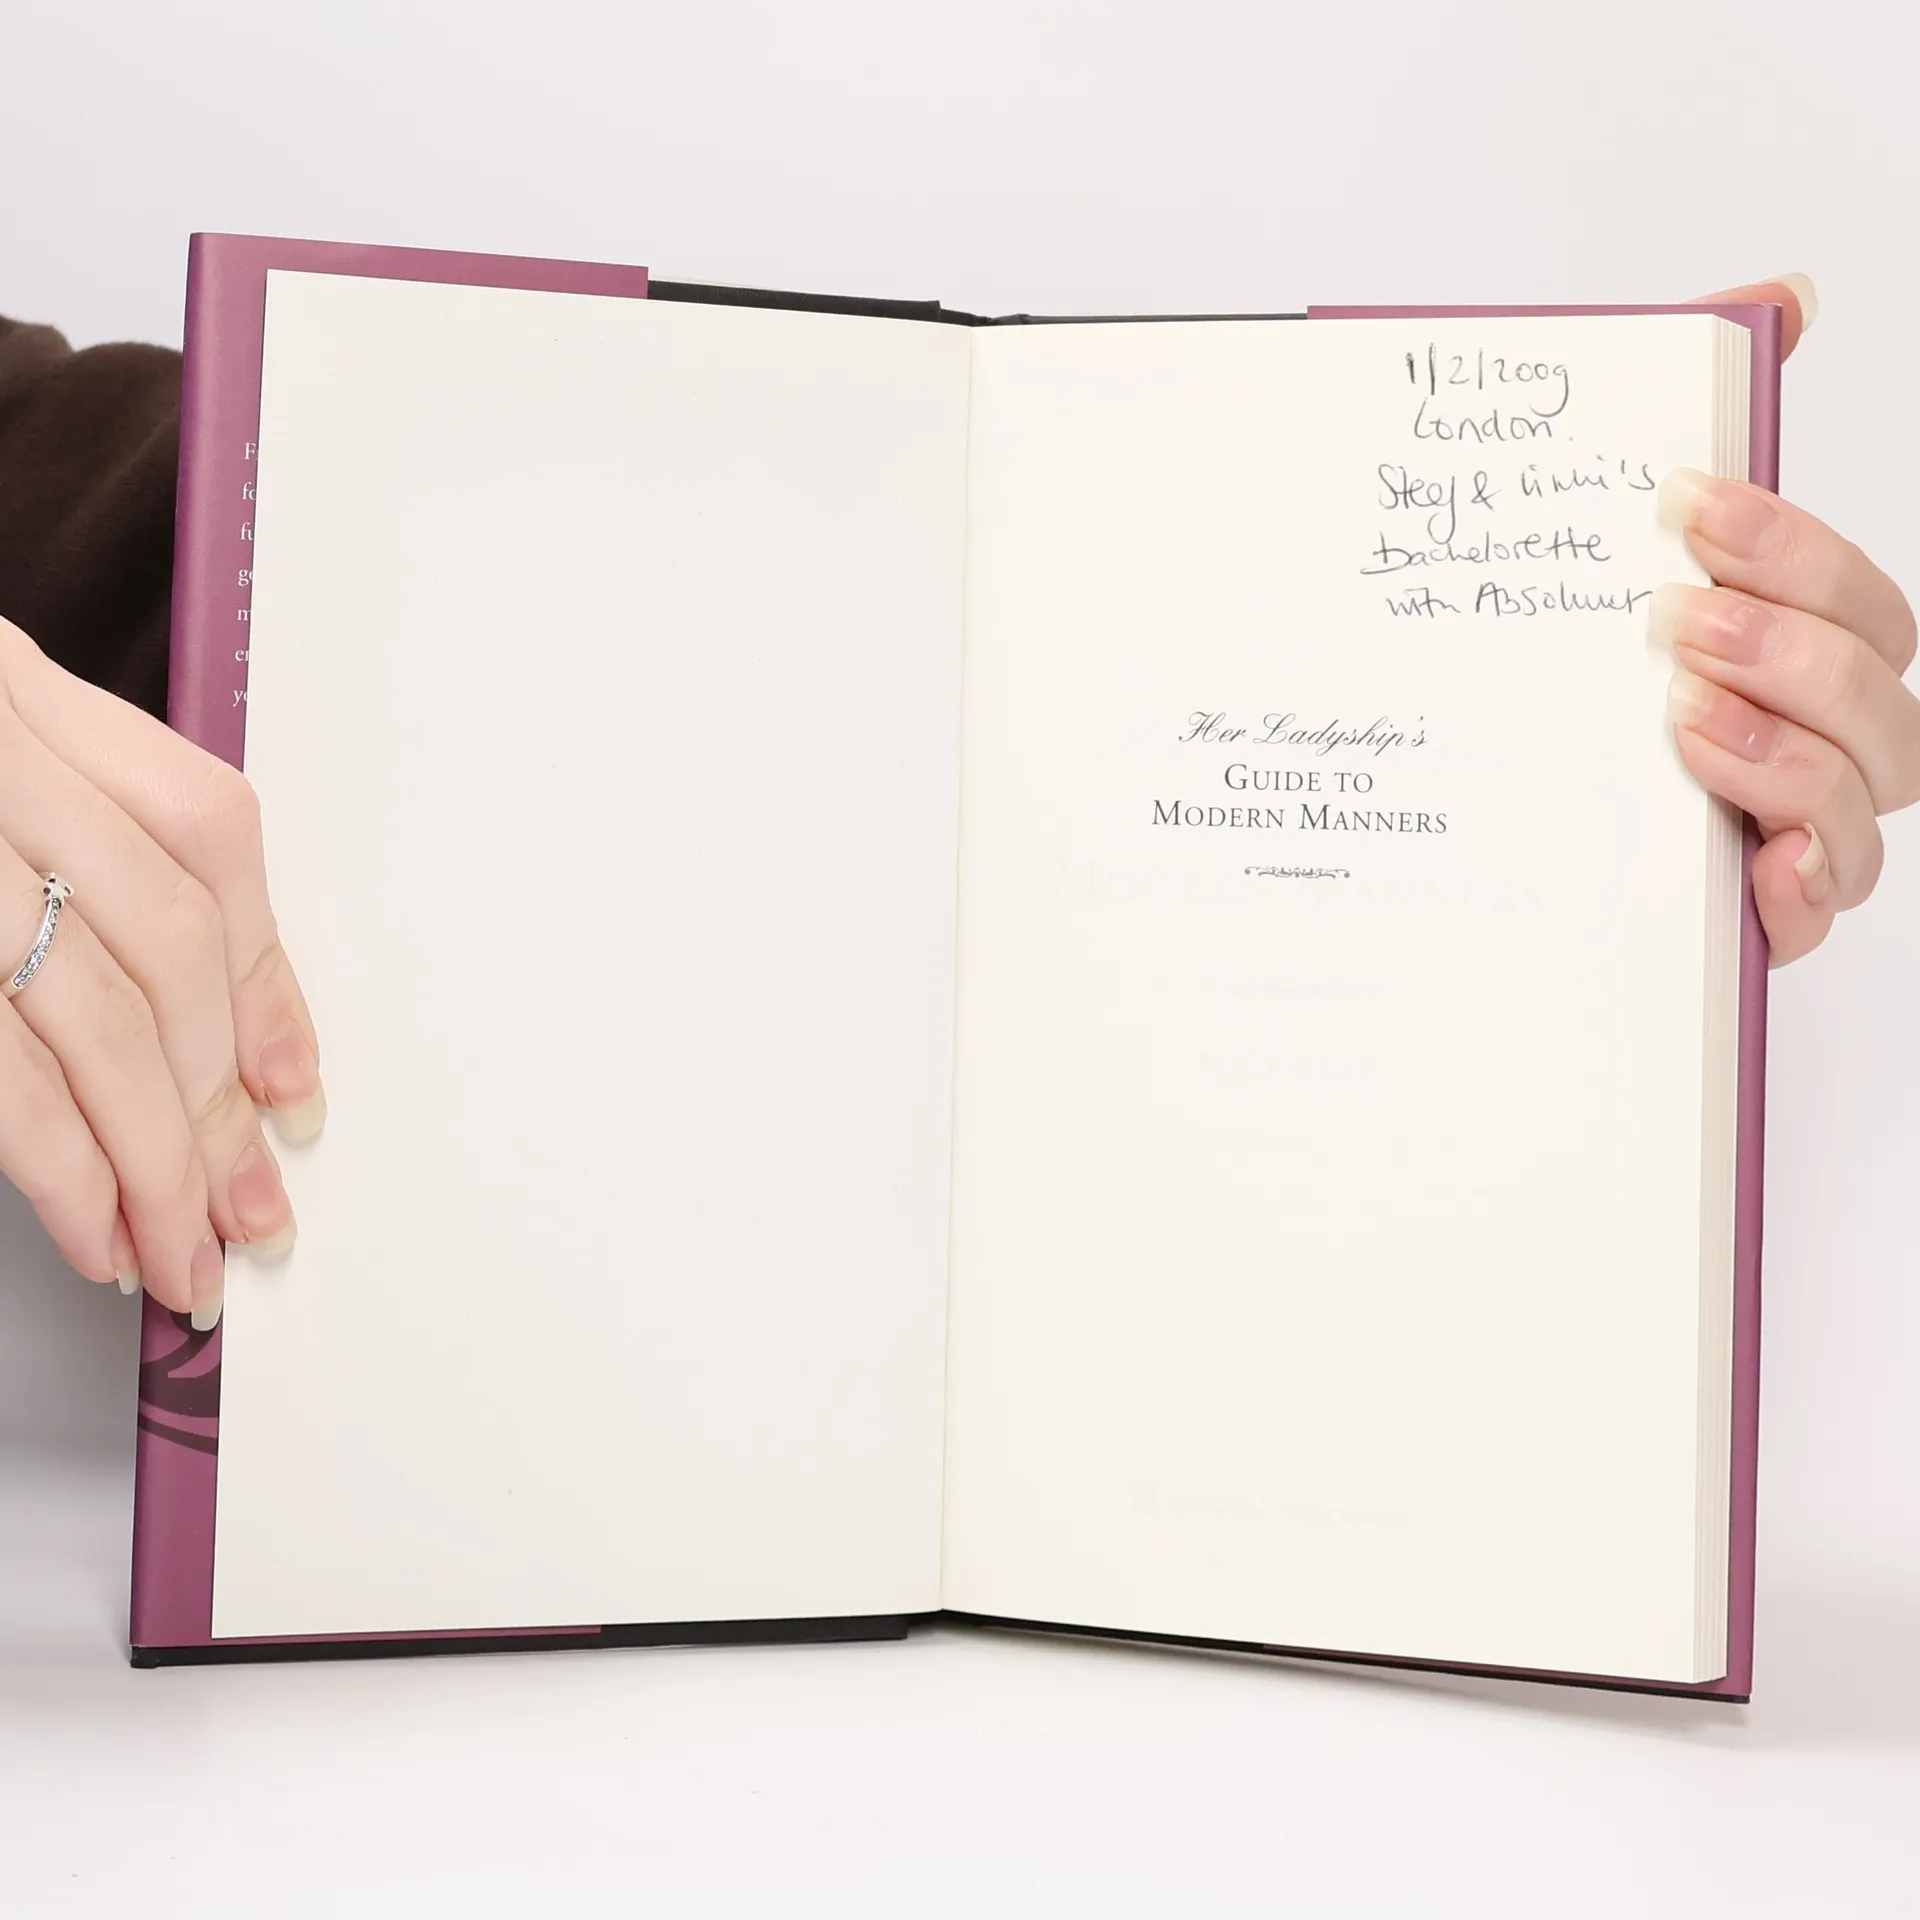 F
fo
fu
ge
m
en
yo
1/2/2009
London.
&
bachelorette
with
Her Ladyship's
GUIDE TO
MODERN MANNERS